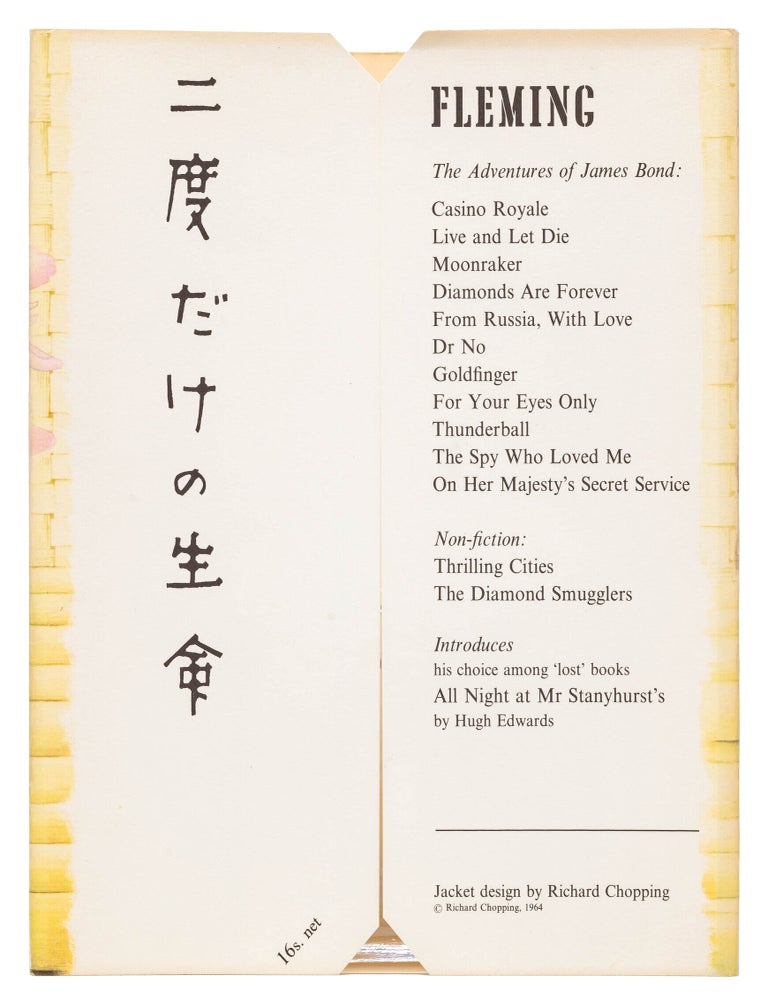 二度だけの生命
16s. net
FLEMING
The Adventures of James Bond:
Casino Royale
Live and Let Die
Moonraker
Diamonds Are Forever
From Russia, With Love
Dr No
Goldfinger
For Your Eyes Only
Thunderball
The Spy Who Loved Me
On Her Majesty’s Secret Service
Non-fiction:
Thrilling Cities
The Diamond Smugglers
Introduces
his choice among ‘lost’ books
All Night at Mr Stanyhurst’s
by Hugh Edwards
Jacket design by Richard Chopping
© Richard Chopping, 1964